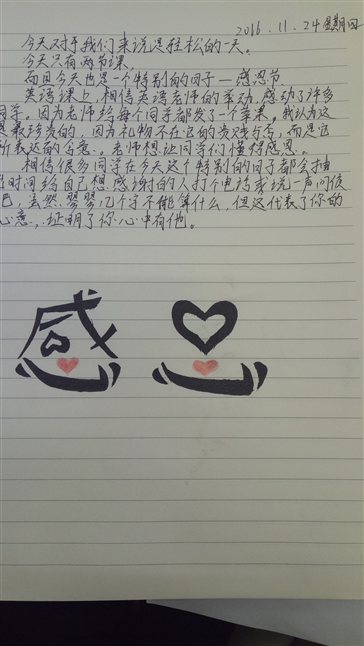 2016.11.24 星期四
今天对于我们来说是轻松的一天。
今天只有两节课。
而且今天也是一个特别的日子—感恩节
英语课上,相信英语老师的举动,感动了许多
同学。因为老师给每个同学都发了一个苹果。我认为这
是最珍贵的,因为礼物不在它的贵贱与否,而是它
所表达的含意。老师想让同学们懂得感恩。
相信很多同学在今天这个特别的日子都会抽
出时间给自己想感谢的人打个电话或说一声问候
吧,虽然寥寥几个字不能算什么,但这代表了你的
心意,证明了你心中有他。
感恩